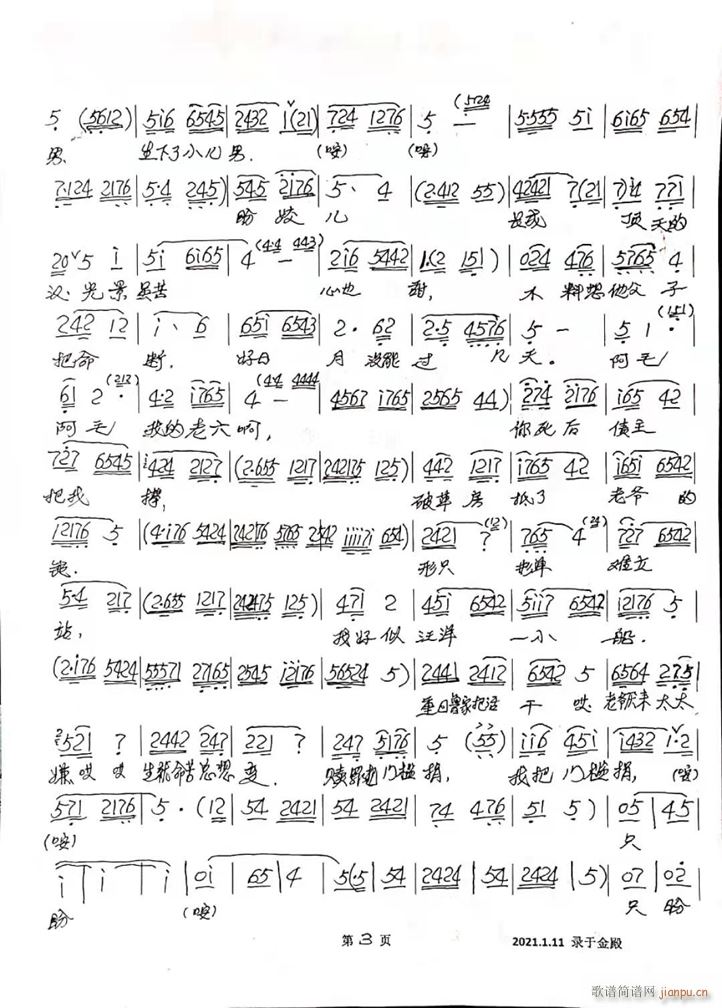 5 (5612) | 5i6 6545 | 2432 1(21) | 724 1276 | 5 — (5724 | 5·555 5i | 6i65 654 |
男, 生下了小儿男. (咹) (咹)
7·124 2176 | 5·4 245) | 54·5 2176 | 5· 4 | (2412 55) | 42421 7(21 | 7)14 771 |
盼 姣 儿 长成 顶天的
20 5 i | 5i 6i65 | 4 — (4·4 443) | 2i6 5442 | 1(2 151) | 024 476 | 5765 4 |
汉. 光景虽苦 心也甜, 不料想他父子
242 12 | i· 6 | 65i 6543 | 2· 62 | 2·5 4576 | 5 — | 5 1· (151)
把命断. 好日月没能过几天. 阿毛
6i 2· (212) | 4·2 i765 | 4 — (4·4 4444 | 4567 i765 | 2565 44) | 274 2176 | i65 42 |
阿毛 我的老六啊, 你死后债主
727 6545 | 424 2127 | (2·655 1217 | 242175 125) | 442 1217 | i765 42 | i651 6542 |
把我撵, 破草房抵了老爷的
12176 5 | (4·i76 5424 | 724276 5765 2542 iiii7i 654) | 2421 7 (12) | 765 4 (24) | 727 6542 |
钱. 形只 影单 难立
5·4 217 | (2·655 1217 | 242475 125) | 471 2 | 45i 6542 | 5ii7 6542 | i2176 5 |
站, 我好似汪洋一小船.
(2·i76 5424 | 55571 27165 | 2545 i2i76 | 56524 5) | 2441 2412 | 6542 5 | 6564 275 |
重回鲁家把活干哎. 老爷来太太
521 7 | 2442 247 | 221 7 | 247 5176 | 5 (55) | ii6 45i | i432 i·2 |
嫌哎哎生就命苦怎想变. 赎罪我把门槛捐, 我把门槛捐, (咹)
571 2176 | 5· (12 | 54 2421 | 54 2421 | 74 476 | 51 5) | 05 | 45 |
(咹) 只
i | i | i | 0i | 65 | 4 | 5(5 | 54 | 2424 | 54 | 2424 | 5) | 07 | 02 |
盼 (咹) 只盼
第 3 页 2021.1.11 录于金殿
歌谱简谱网
jianpu.cn